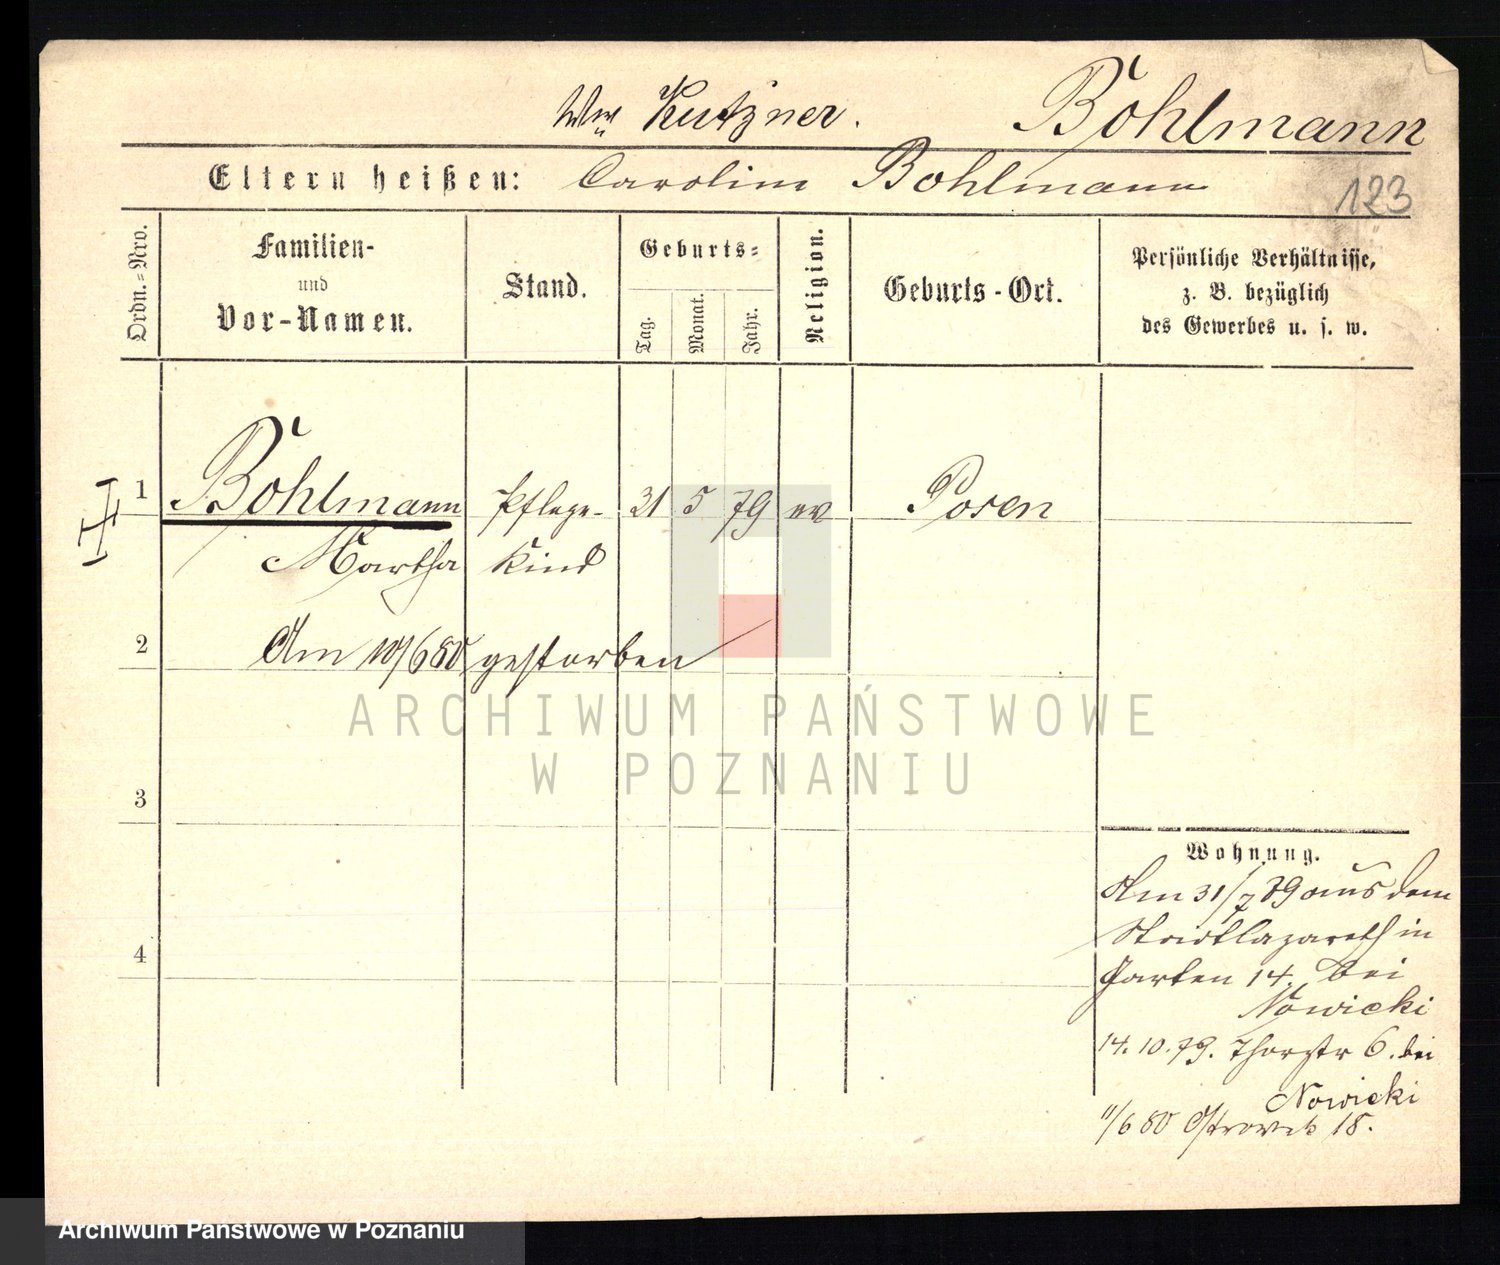 Ww Kutzner. Böhlmann
Eltern heißen: Carolina Bohlmann
123
Ordn.=Nro.
Familien-
und
Vor-Namen.
Stand.
Geburts=
Tag.
Monat.
Jahr.
Religion.
Geburts-Ort.
Persönliche Verhältnisse,
z. B. bezüglich
des Gewerbes u. s. w.
1 Böhlmann Pflege- 31 5 79 ev Posen
Martha Kind
2 Am 10/6 80 gestorben
ARCHIWUM PAŃSTWOWE
W POZNANIU
3
Wohnung.
Am 31/7 79 aus dem
Stadtlazareth in
4
Garten 14. bei
Nowicki
14.10.79. Thorstr 6. bei
Nowicki
11/6 80 Ostrowek 18.
Archiwum Państwowe w Poznaniu